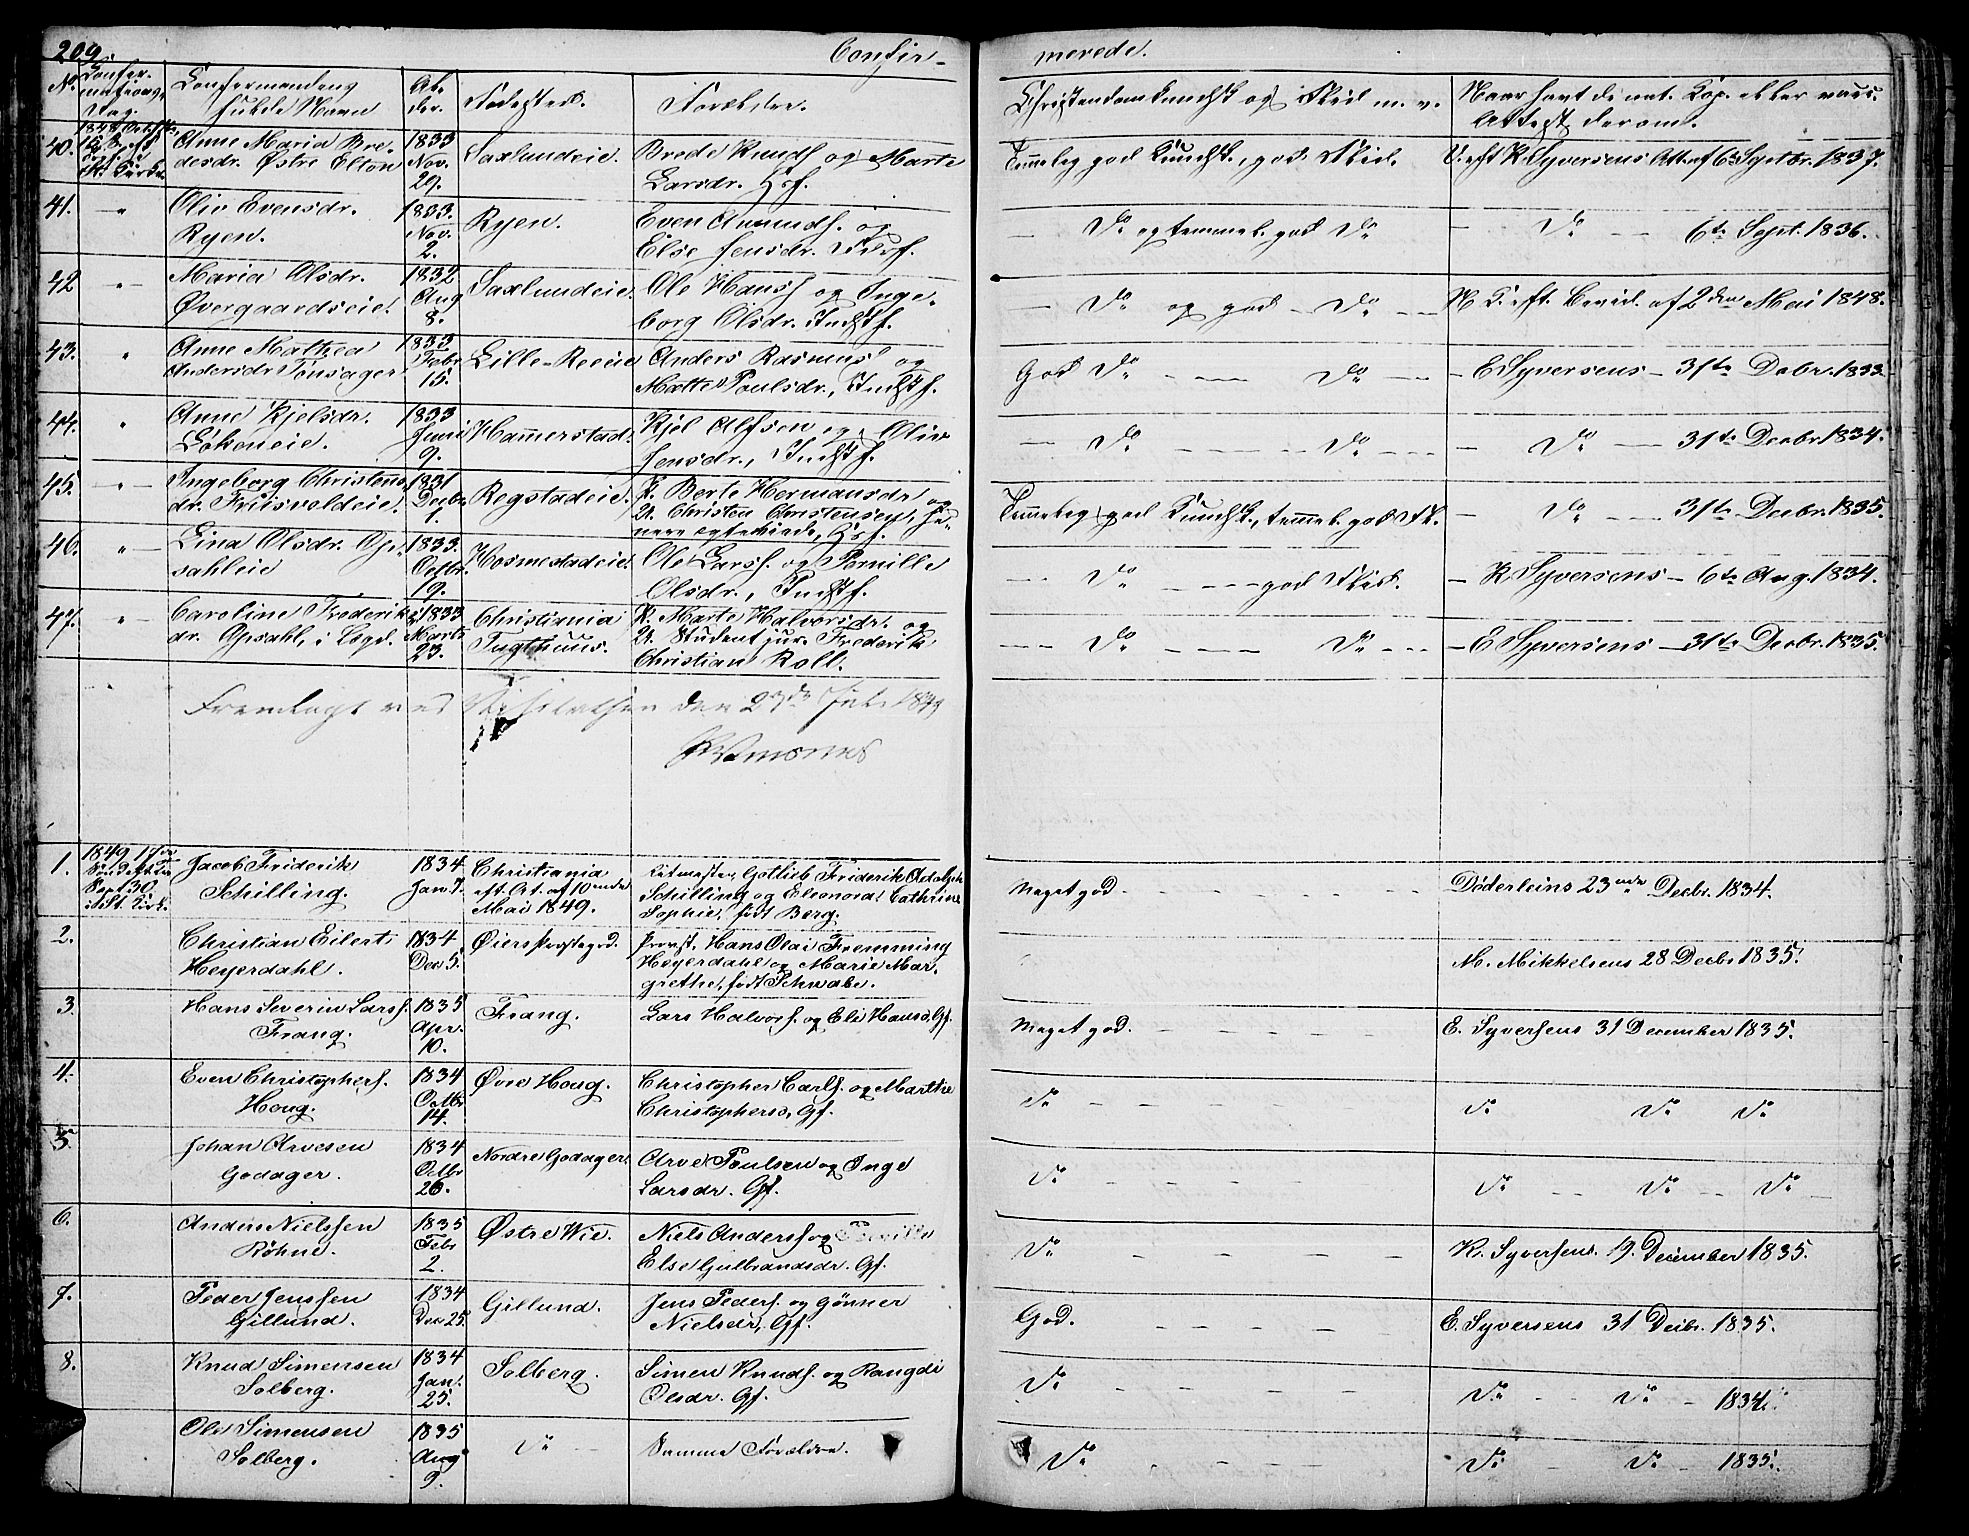 209.
Confir-
merede.
No
Confir-
mations
Dag.
Confirmandens
fulde Navn
Al-
der.
Fødested.
Forældre.
Christendomskundsk og Flid m. v.
Naar havt de nat. Kop. eller vacc.
Attest derom.
40.
Anne Maria Bre-
desdr. Østre Elton
1833
Nov.
29.
Saxlundeie.
Brede Knuds. og Marte
Larsdr. Hsf.
Temmelig god Kundsk., god Flid.
V. eft K Syversens Att. af 6te Septbr. 1837.
41.
Oliv Evensdr.
Ryen.
1833.
Nov.
2.
Ryen.
Even Amunds. og
Else Jensdr.
Do og temmel. god Do
Do 6te Sept. 1836.
42
Maria Olsdr.
Øvergaardseie.
1832
Aug
8.
Saxlundeie.
Ole Hanss. og Inge-
borg Olsdr. Indstf.
Do og god Do
N. C. eft. Bevid. af 2den Mai 1848.
43.
Anne Mathea
Andersdr Tønsager
1833
Febr
15.
Lille-Reeeie
Anders Rasmuss. og
Mette Poulsdr., Indstf.
God Do Do
E Syversens 31te Debr. 1833
44.
Anne Kjelsdr.
Løkeneie.
1833
Juni
9.
Hamerstad.
Kjel Alfsen og Oliv
Jensdr., Indstf.
Do Do
Do 31te Decbr 1834.
45.
Ingeborg Christens
dr. Friisvoldeie.
1831
Decbr
1.
Rogstadeie.
P. Berte Hermansdr og
U. Christen Christensen, se-
nere egteviede, Hsf.
Temmelig god Kundsk., temmel. god Fl.
Do 31te Decbr. 1835.
46.
Lina Olsdr. Op-
sahleie
1833.
Octbr.
19.
Hosmestadeie.
Ole Larss. og Pernille
Olsdr., Indstf.
Do god Flid.
K Syversens 6te Aug. 1834.
47.
Caroline Frederiks
dr. Opsahl, i Lægd.
1833
Marts
23.
Christiania
Tugthuus.
P. Marte Halvorsdr. og
U. Student jur. Frederik
Christian Roll.
Do Do
E Syversens 31te Decbr. 1835.
Fremlagt ved Visitatsen den 23de Juli 1849
1.
1849 17de
Sønd eft Tr
Sept 30.
i St. Kirk.
Jacob Friderik
Schilling.
1834
Jan 7.
Christiania
eft At. af 10ende
Mai 1849.
Ritmester Gotlieb Friderik Adolph
Schilling og Eleonora Cathrine
Sophie, født Berg.
Meget god.
Døderleins 23nde Decbr. 1834.
2.
Christian Eilert
Heyerdahl.
1834
Dec 5.
Øiers Prestegod.
Provst. Hans Olai Fremming
Heyerdahl og Marie Mar-
grethe, født Schwabe.
M. Mikkelsens 28 Decbr 1835.
3.
Hans Severin Larss.
Frang.
1835
Apr.
10.
Frang.
Lars Halvors. og Eli Hansd. Gf.
Meget god.
E. Syversens 31 December 1835.
4.
Even Christophers.
Houg.
1834
Octbr
14.
Øvre Houg.
Christopher Carls. og Marthe
Christophersd. Gf.
Do
Do Do Do
5.
Johan Arvesen
Godager.
1834
Octbr
26.
Nordre Godager.
Arve Poulsen og Inge
Larsdr. Gf.
Do
Do Do Do
6.
Anders Nielssen
Røhne.
1835
Febr
2.
Østre Wie.
Niels Anders. og
Else Gulbrandsdr. Gf.
Do
K. Syversens. 19. December 1835.
7.
Peder Jenssen
Gillund.
1834
Dec 25.
Gillund.
Jens Peders. og Gønner
Nielsdr. Gf.
God.
E. Syversens 31 Decbr. 1835.
8.
Knud Simensen
Solberg.
1834
Jan.
25.
Solberg.
Simen Knuds. og Rangdi
Olsdr. Gf.
Do
Do Do 1834.
Ole Simensen
Solberg.
1835
Aug
9.
Do
Samme Forældre.
Do
Do Do 1835.